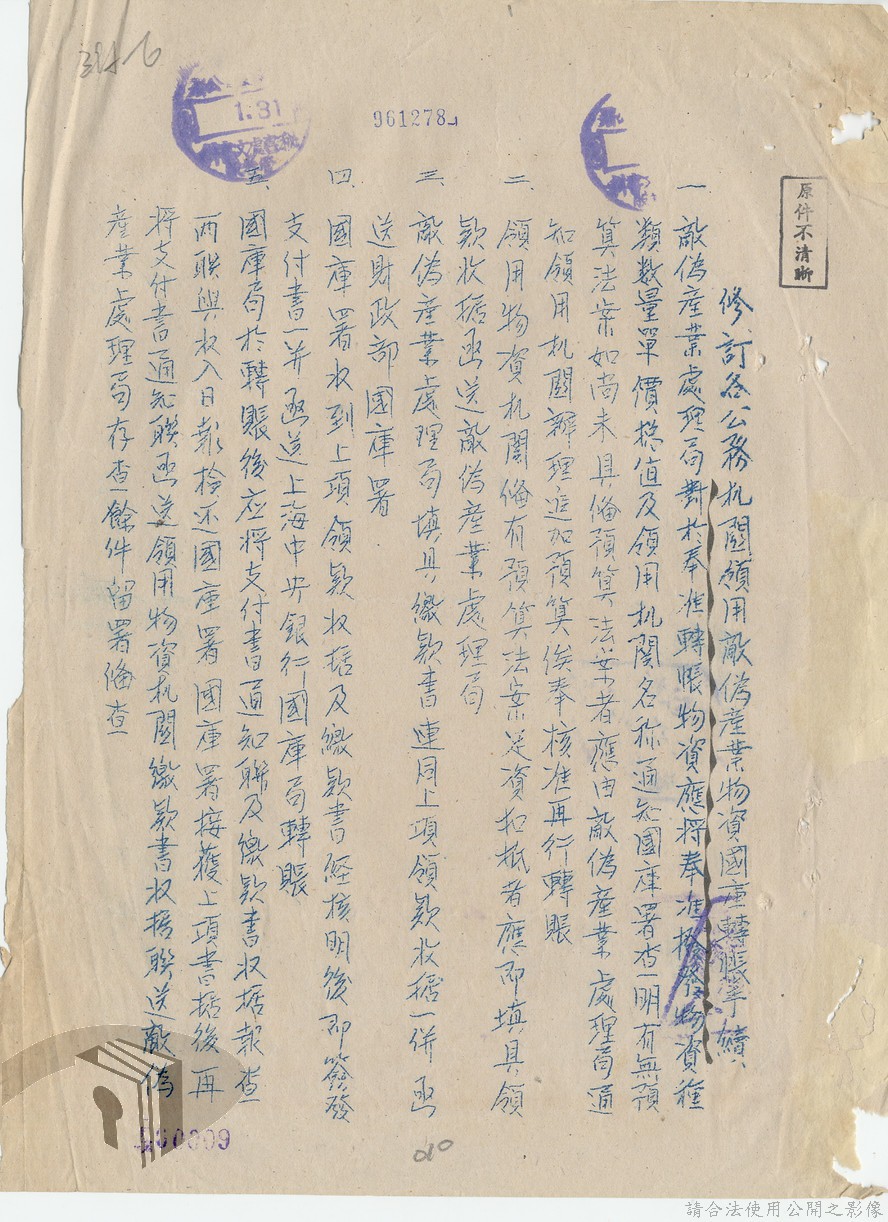 原件不清晰
修訂各公務机關領用敵偽產業物資國庫轉賬手續
一 敵偽產業處理局對於奉准轉賬物資應將奉准撥發物資種
類數量單價總值及領用机關名称通知國庫署查明有無預
算法案如尚未具備預算法案者應由敵偽產業處理局通
知領用机關辦理追加預算俟奉核准再行轉賬
二 領用物資机關備有預算法案足資扣抵者應即填具領
款收据函送敵偽產業處理局
三 敵偽產業處理局填具繳款書連同上項領款收據一併函
送財政部國庫署
四 國庫署收到上項領款收据及繳款書經核明後即簽發
支付書一并函送上海中央銀行國庫局轉賬
五 國庫局於轉賬後应將支付書通知聯及繳款書收据報查
兩联與收入日報檢还國庫署國庫署接獲上項書据後再
將支付書通知聯函送領用物資机關繳款書收據聯送敵偽
產業處理局存查餘件留署備查
961278
1.31
010
請合法使用公開之影像